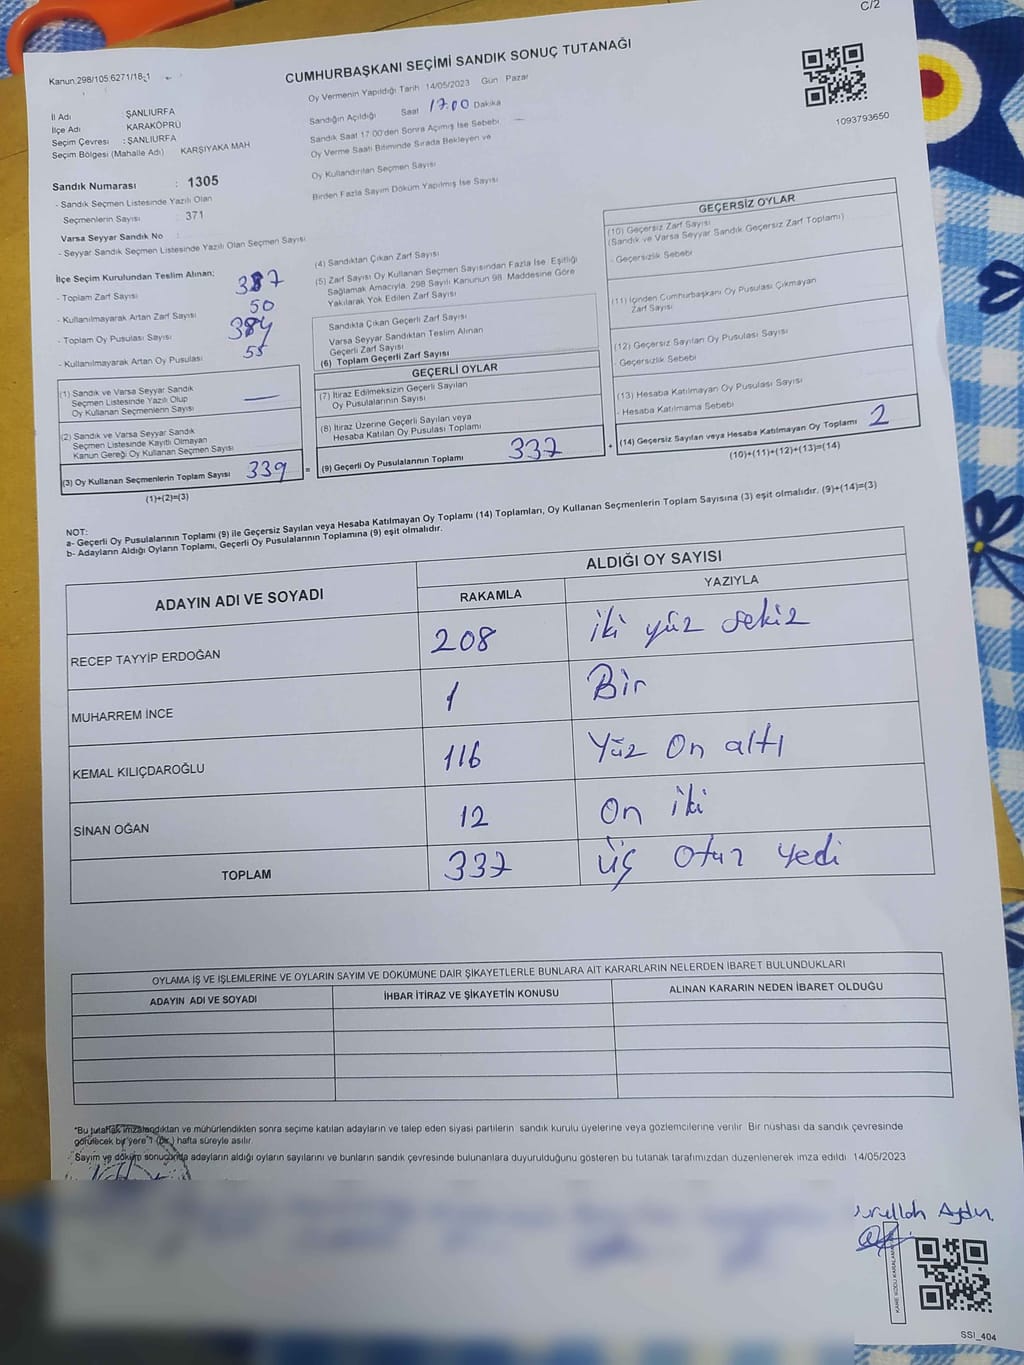 C/2
Kanun:298/105:6271/18-1
CUMHURBAŞKANI SEÇİMİ SANDIK SONUÇ TUTANAĞI
Oy Vermenin Yapıldığı Tarih 14/05/2023 Gün Pazar
İl Adı ŞANLIURFA
İlçe Adı KARAKÖPRÜ
Seçim Çevresi : ŞANLIURFA
Seçim Bölgesi (Mahalle Adı) KARŞIYAKA MAH
Sandığın Açıldığı Saat 17:00 Dakika
Sandık Saat 17:00'den Sonra Açımış İse Sebebi
Oy Verme Saati Bitiminde Sırada Bekleyen ve
Oy Kullandırılan Seçmen Sayısı
Birden Fazla Sayım Döküm Yapılmış İse Sayısı
1093793650
Sandık Numarası : 1305
- Sandık Seçmen Listesinde Yazılı Olan
Seçmenlerin Sayısı : 371
Varsa Seyyar Sandık No :
- Seyyar Sandık Seçmen Listesinde Yazılı Olan Seçmen Sayısı
İlçe Seçim Kurulundan Teslim Alınan;
- Toplam Zarf Sayısı 387
- Kullanılmayarak Artan Zarf Sayısı 50
- Toplam Oy Pusulası Sayısı 384
- Kullanılmayarak Artan Oy Pusulası 55
(1) Sandık ve Varsa Seyyar Sandık
Seçmen Listesinde Yazılı Olup
Oy Kullanan Seçmenlerin Sayısı —
(2) Sandık ve Varsa Seyyar Sandık
Seçmen Listesinde Kayıtlı Olmayan
Kanun Gereği Oy Kullanan Seçmen Sayısı
(3) Oy Kullanan Seçmenlerin Toplam Sayısı 339
(1)+(2)=(3)
(4) Sandıktan Çıkan Zarf Sayısı
(5) Zarf Sayısı Oy Kullanan Seçmen Sayısından Fazla İse Eşitliği
Sağlamak Amacıyla, 298 Sayılı Kanunun 98. Maddesine Göre
Yakılarak Yok Edilen Zarf Sayısı
Sandıkta Çıkan Geçerli Zarf Sayısı
Varsa Seyyar Sandıktan Teslim Alınan
Geçerli Zarf Sayısı
(6) Toplam Geçerli Zarf Sayısı
GEÇERLİ OYLAR
(7) İtiraz Edilmeksizin Geçerli Sayılan
Oy Pusulalarının Sayısı
(8) İtiraz Üzerine Geçerli Sayılan veya
Hesaba Katılan Oy Pusulası Toplamı
= (9) Geçerli Oy Pusulalarının Toplamı 337
GEÇERSİZ OYLAR
(10) Geçersiz Zarf Sayısı
(Sandık ve Varsa Seyyar Sandık Geçersiz Zarf Toplamı)
- Geçersizlik Sebebi
(11) İçinden Cumhurbaşkanı Oy Pusulası Çıkmayan
Zarf Sayısı
(12) Geçersiz Sayılan Oy Pusulası Sayısı
- Geçersizlik Sebebi
(13) Hesaba Katılmayan Oy Pusulası Sayısı
- Hesaba Katılmama Sebebi
+ (14) Geçersiz Sayılan veya Hesaba Katılmayan Oy Toplamı 2
(10)+(11)+(12)+(13)=(14)
NOT:
a- Geçerli Oy Pusulalarının Toplamı (9) ile Geçersiz Sayılan veya Hesaba Katılmayan Oy Toplamı (14) Toplamları, Oy Kullanan Seçmenlerin Toplam Sayısına (3) eşit olmalıdır. (9)+(14)=(3)
b- Adayların Aldığı Oyların Toplamı, Geçerli Oy Pusulalarının Toplamına (9) eşit olmalıdır.
ADAYIN ADI VE SOYADI ALDIĞI OY SAYISI
RAKAMLA YAZIYLA
RECEP TAYYİP ERDOĞAN 208 iki yüz sekiz
MUHARREM İNCE 1 Bir
KEMAL KILIÇDAROĞLU 116 Yüz On altı
SİNAN OĞAN 12 On iki
TOPLAM 337 üç otuz yedi
OYLAMA İŞ VE İŞLEMLERİNE VE OYLARIN SAYIM VE DÖKÜMÜNE DAİR ŞİKAYETLERLE BUNLARA AİT KARARLARIN NELERDEN İBARET BULUNDUKLARI
ADAYIN ADI VE SOYADI İHBAR İTİRAZ VE ŞİKAYETİN KONUSU ALINAN KARARIN NEDEN İBARET OLDUĞU
*Bu tutanak imzalandıktan ve mühürlendikten sonra seçime katılan adayların ve talep eden siyasi partilerin sandık kurulu üyelerine veya gözlemcilerine verilir. Bir nüshası da sandık çevresinde
görülecek bir yere 1 (bir) hafta süreyle asılır.
Sayım ve döküm sonucunda adayların aldığı oyların sayılarını ve bunların sandık çevresinde bulunanlara duyurulduğunu gösteren bu tutanak tarafımızdan düzenlenerek imza edildi. 14/05/2023
Aydın
SSI_404